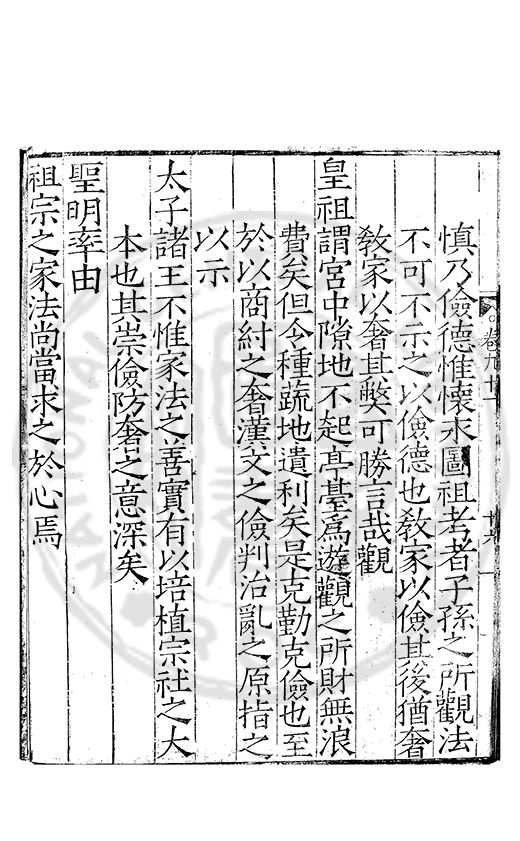 慎乃儉德惟懷永圖祖考者子孫之所觀法
不可不示之以儉德也教家以儉其後猶奢
教家以奢其獘可勝言哉觀
皇祖謂宮中隙地不起亭臺為遊觀之所財無浪
費矣但令種蔬地遺利矣是克勤克儉也至
於以商紂之奢漢文之儉判治亂之原指之
以示
太子諸王不惟家法之善實有以培植宗社之大
本也其崇儉防奢之意深矣
聖明率由
祖宗之家法尚當求之於心焉